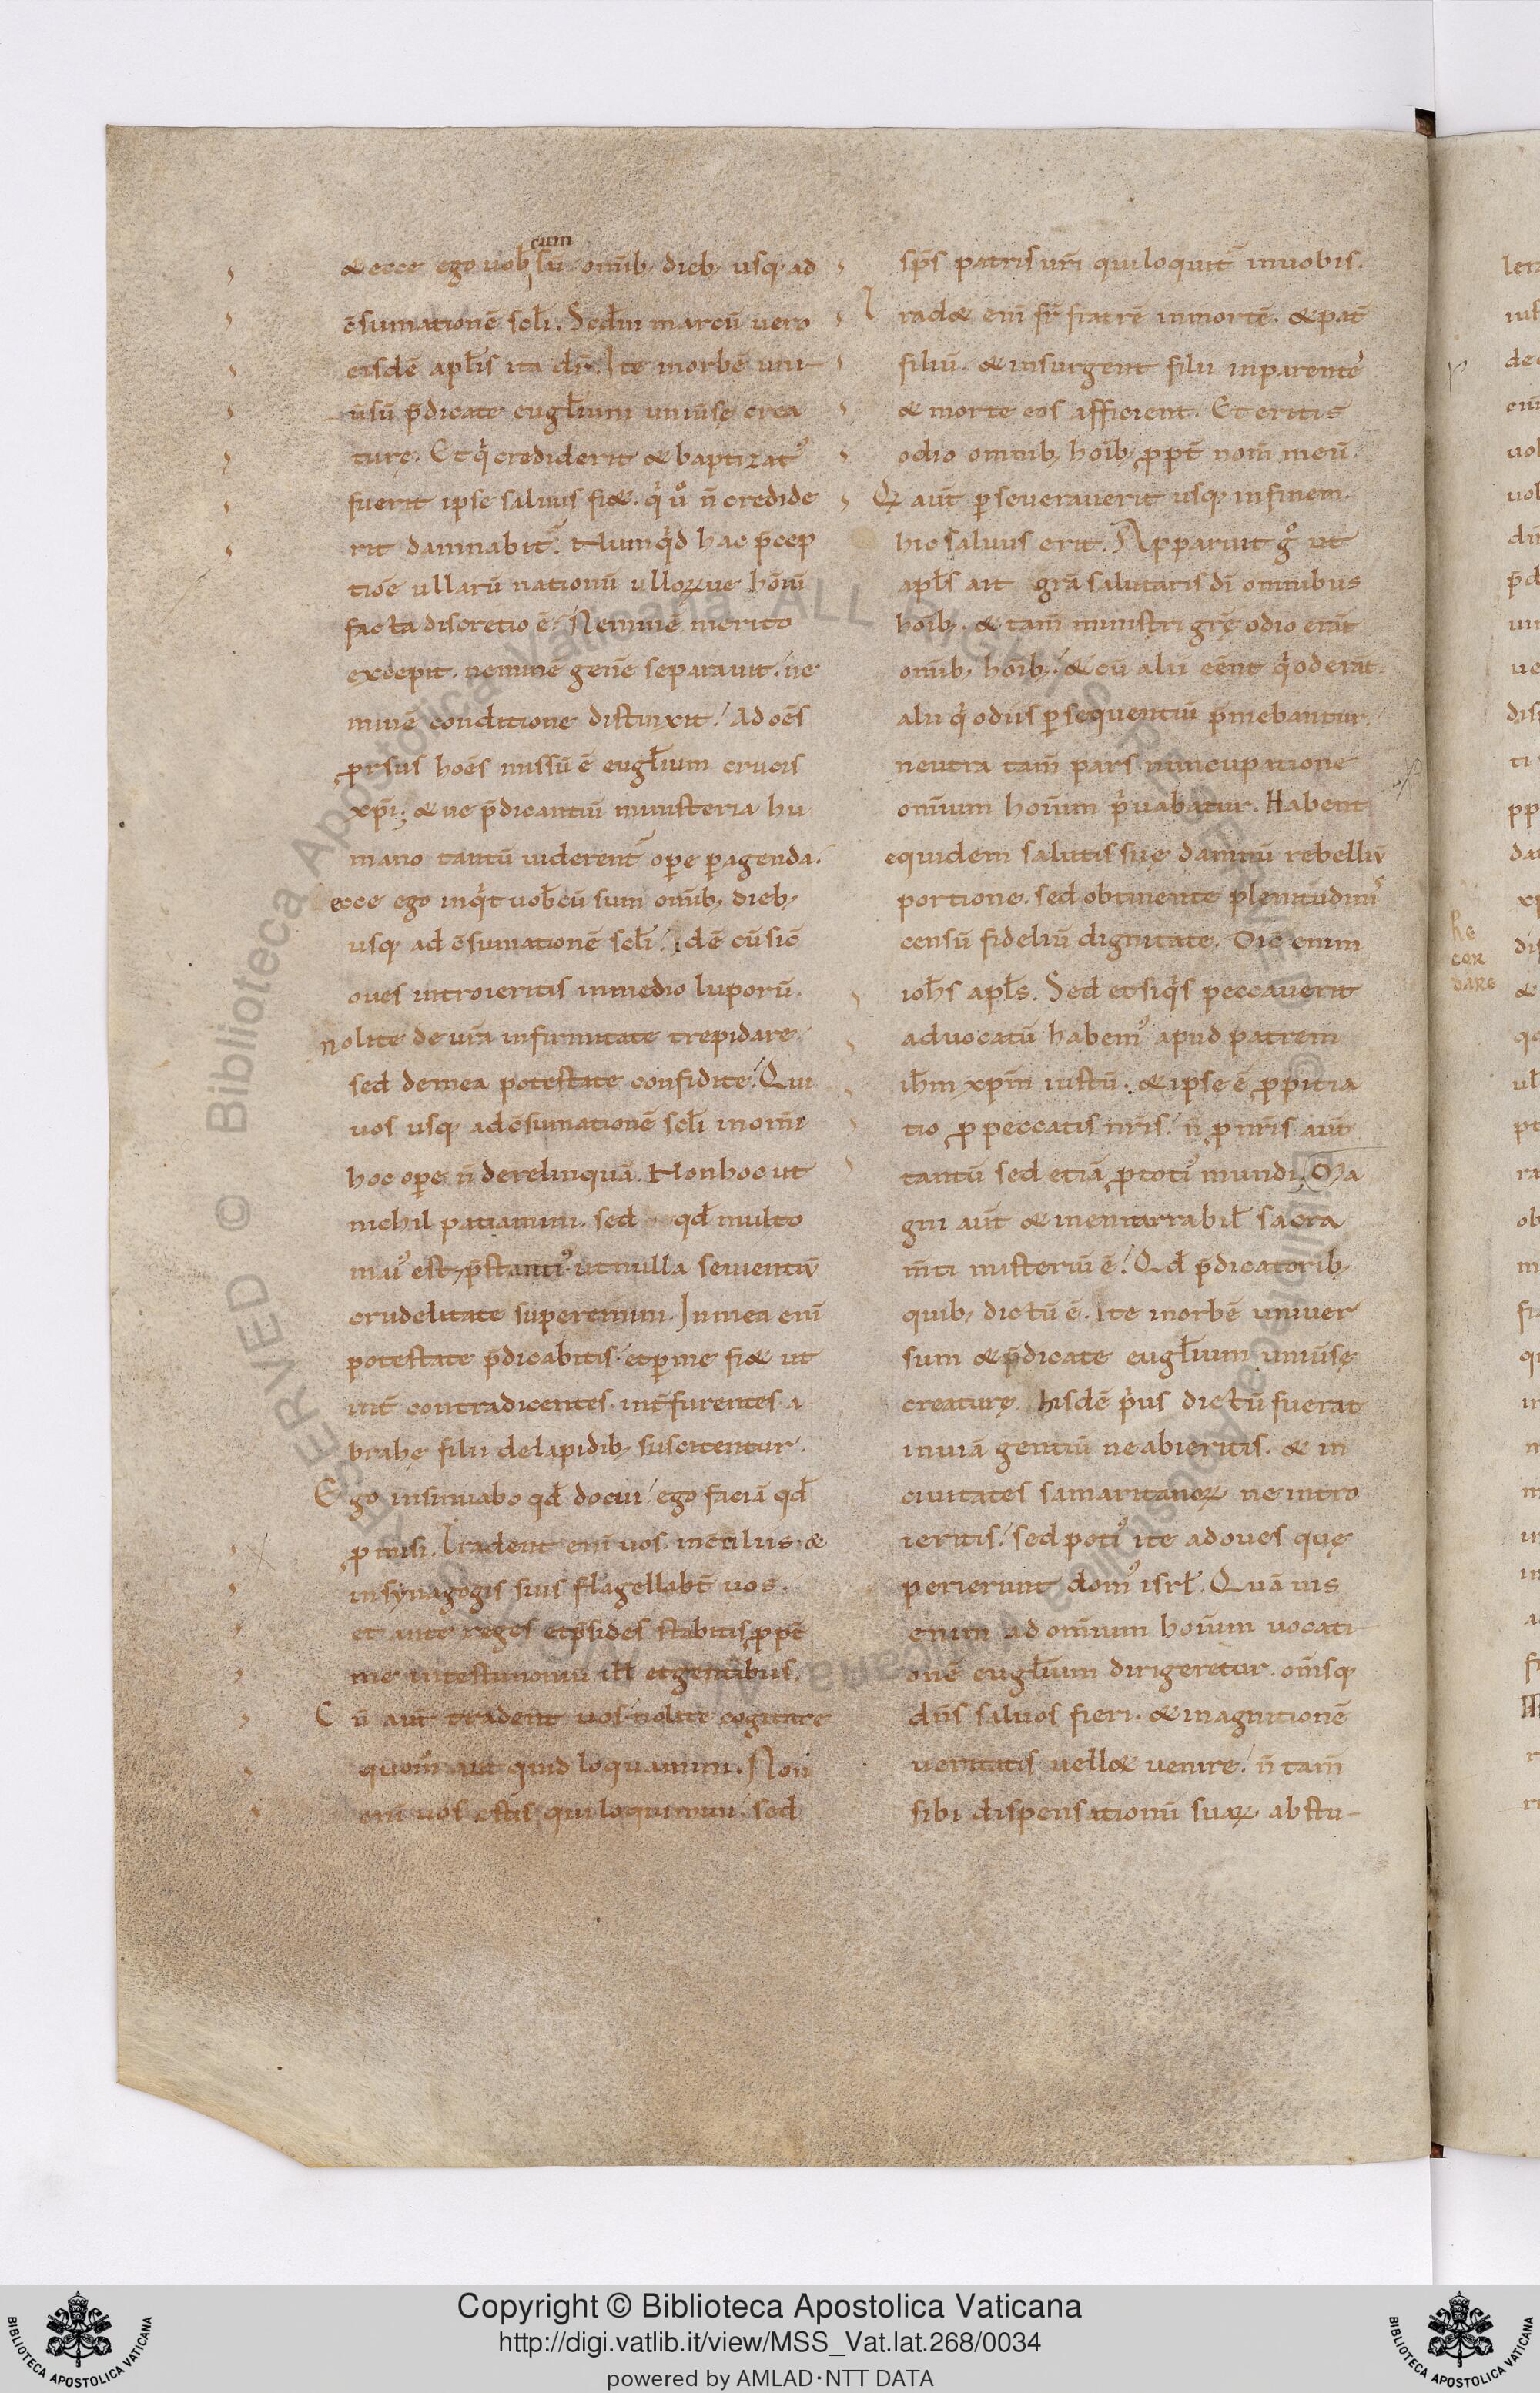 & ecce ego uob̅ cum su̅ om̅ib; dieb; usq; ad
c̅sumatione̅ scl̅i. Scd̅m marcu̅ uero
eisde̅ apl̅is ita dr̅. Ite in orbe̅ uni-
u̅su̅ p̅dicate eugl̅ium uniu̅sę crea
turę. Et q̍ crediderit & baptizat᷒
fuerit ipse saluus fi&. q̍ ů n̅ credide
rit damnabit̅. Numq̍d hac p̅cep
tio̅e ullaru̅ nationu̅ ulloꝝue ho̅iu̅
facta discretio e̅. Nemine̅ merito
excepit. nemine̅ gen̅e separauit. ne
mine̅ conditione distinxit. Ad oe̅s
ꝓrsus hoe̅s missu̅ e̅ eugl̅ium crucis
xp̅i; & ne p̅dicantiu̅ ministeria hu
mano tantu̅ uiderent̅ ope̅ ꝑagenda.
ecce ego inq̍t uob̅cu̅ sum om̅ib; dieb;
usq; ad c̅sumatione̅ scl̅i. ide̅ cu̅ sic̅
oues introieritis in medio luporu̅.
nolite de ur̅a infirmitate trepidare.
sed de mea potestate confidite. Qui
uos usq; ad c̅sumatione̅ scl̅i in om̅i
hoc ope̅ n̅ derelinqua̅. Non hoc ut
nichil patiamini. sed qd̅ multo
mai᷒ est p̅stanti᷒. ut nulla seuientiu̅
crudelitate superemini. In mea eni̅
potestate p̅dicabitis. et ꝑ me fi& ut
int̅ contradicentes. int̅ furentes. a
brahę filii de lapidib; suscitentur.
Ego insinuabo qd̅ docui. ego facia̅ qd̅
ꝓmisi. Tradent eni̅ uos. in c̅ciliis. &
in synagogis suis flagellab̅t uos.
et ante reges et p̅sides stabitis ꝓpt̅
me in testimoniu̅ ill̅ et gentibus.
Cu̅ aut̅ tradent uos. nolite cogitare
quom̅ aut quid loquamini. Non
eni̅ uos estis qui loquimini. sed
sp̅s patris ur̅i qui loquit̅ in uobis.
Trad& eni̅ fr̅ fratre̅ in morte̅. & pat̅
filiu̅. & insurgent filii in parente̅
& morte eos afficient. Et eritis
odio omnib; hoi̅b; ꝓpt̅ nom̅ meu̅.
Q̍ aut̅ ꝑseuerauerit usq; in finem.
hic saluus erit. Apparuit g̊ ut
apl̅s ait gr̅a salutaris di̅ omnibus
hoi̅b;. & tam̅ ministri gr̅ę odio era̅t
om̅ib; hoi̅b;. & cu̅ alii ee̅nt q̍ odera̅t.
alii q̍ odiis ꝑsequentiu̅ p̅mebantur.
neutra tam̅ pars nuncupatione
om̅ium hoi̅um p̍uabatur. Habent
equidem salutis suę damnu̅ rebelliu̅
portione. sed obtinente plenitudini᷒
censu̅ fideliu̅ dignitate. Dic̅ enim
ioh̅s apl̅s. Sed et siq̍s peccauerit
aduocatu̅ habem᷒ apud patrem
ih̅m xp̅m iustu̅. & ipse e̅ ꝓpitia
tio ꝓ peccatis nr̅is. n̅ ꝓ nr̅is aut̅
tantu̅ sed etia̅ ꝓ toti᷒ mundi. Ma
gni aut̅ & inenarrabil̅ sacra
m̅ti misteriu̅ e̅. Qd̅ p̅dicatorib;
quib; dictu̅ e̅. Ite in orbe̅ uniuer
sum & p̅dicate eugl̅ium uniu̅sę
creaturę. hisde̅ p̍us dictu̅ fuerat
in uia̅ gentiu̅ ne abieritis. & in
ciuitates samaritanoꝝ ne intro
ieritis. sed poti᷒ ite ad oues quę
perierunt dom᷒ isrl̅. Qua̅uis
enim ad om̅ium hoi̅um uocati-
one̅ eugl̅ium dirigeretur. om̅sq;
dn̅s saluos fieri. & in agnitione̅
ueritatis uell& uenire. n̅ tam̅
sibi dispensationu̅ suaꝝ abstu-
Re
cor
dare
Copyright © Biblioteca Apostolica Vaticana
http://digi.vatlib.it/view/MSS_Vat.lat.268/0034
powered by AMLAD·NTT DATA
BIBLIOTECA APOSTOLICA VATICANA
BIBLIOTECA APOSTOLICA VATICANA